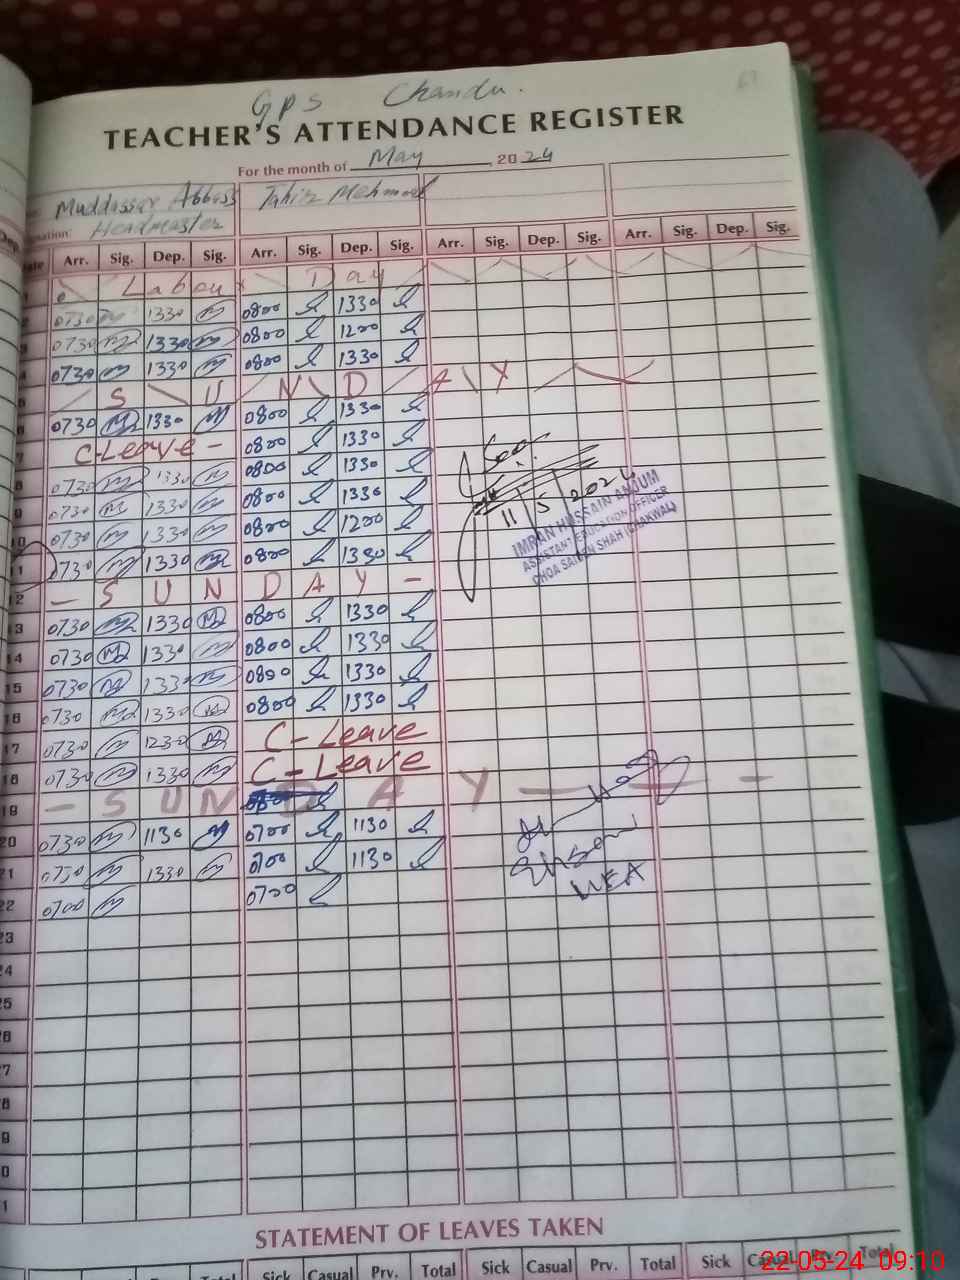 GPS Chandu.
TEACHER'S ATTENDANCE REGISTER
For the month of May 2024
Muddassar Abbass Tahir Mehmood
Headmaster
Arr. Sig. Dep. Sig. Arr. Sig. Dep. Sig. Arr. Sig. Dep. Sig. Arr. Sig. Dep. Sig.
1 Labour Day
2 0730 1330 0800 1330
3 0730 1330 0800 1200
4 0730 1330 0800 1330
5 S U N D A Y
6 0730 1330 0800 1330
7 C-Leave - 0800 1330
8 0730 1330 0800 1330
9 0730 1330 0800 1330
10 0730 1330 0800 1200
11 0730 1330 0800 1330
11/5/2024
IMRAN HUSSAIN ANJUM
ASSISTANT EDUCATION OFFICER
CHOA SAIDEN SHAH (CHAKWAL)
12 - S U N D A Y -
13 0730 1330 0800 1330
14 0730 1330 0800 1330
15 0730 1330 0800 1330
16 0730 1330 0800 1330
17 0730 1230 C-Leave
18 0730 1330 C-Leave
19 - S U N D A Y - - -
20 0730 1130 0700 1130
21 0730 1330 0700 1130
22 0700 0700
23
24
25
26
27
28
29
30
31
STATEMENT OF LEAVES TAKEN
Sick Casual Prv. Total Sick Casual Prv. Total Sick Casual Prv. Total
22-05-24 09:10